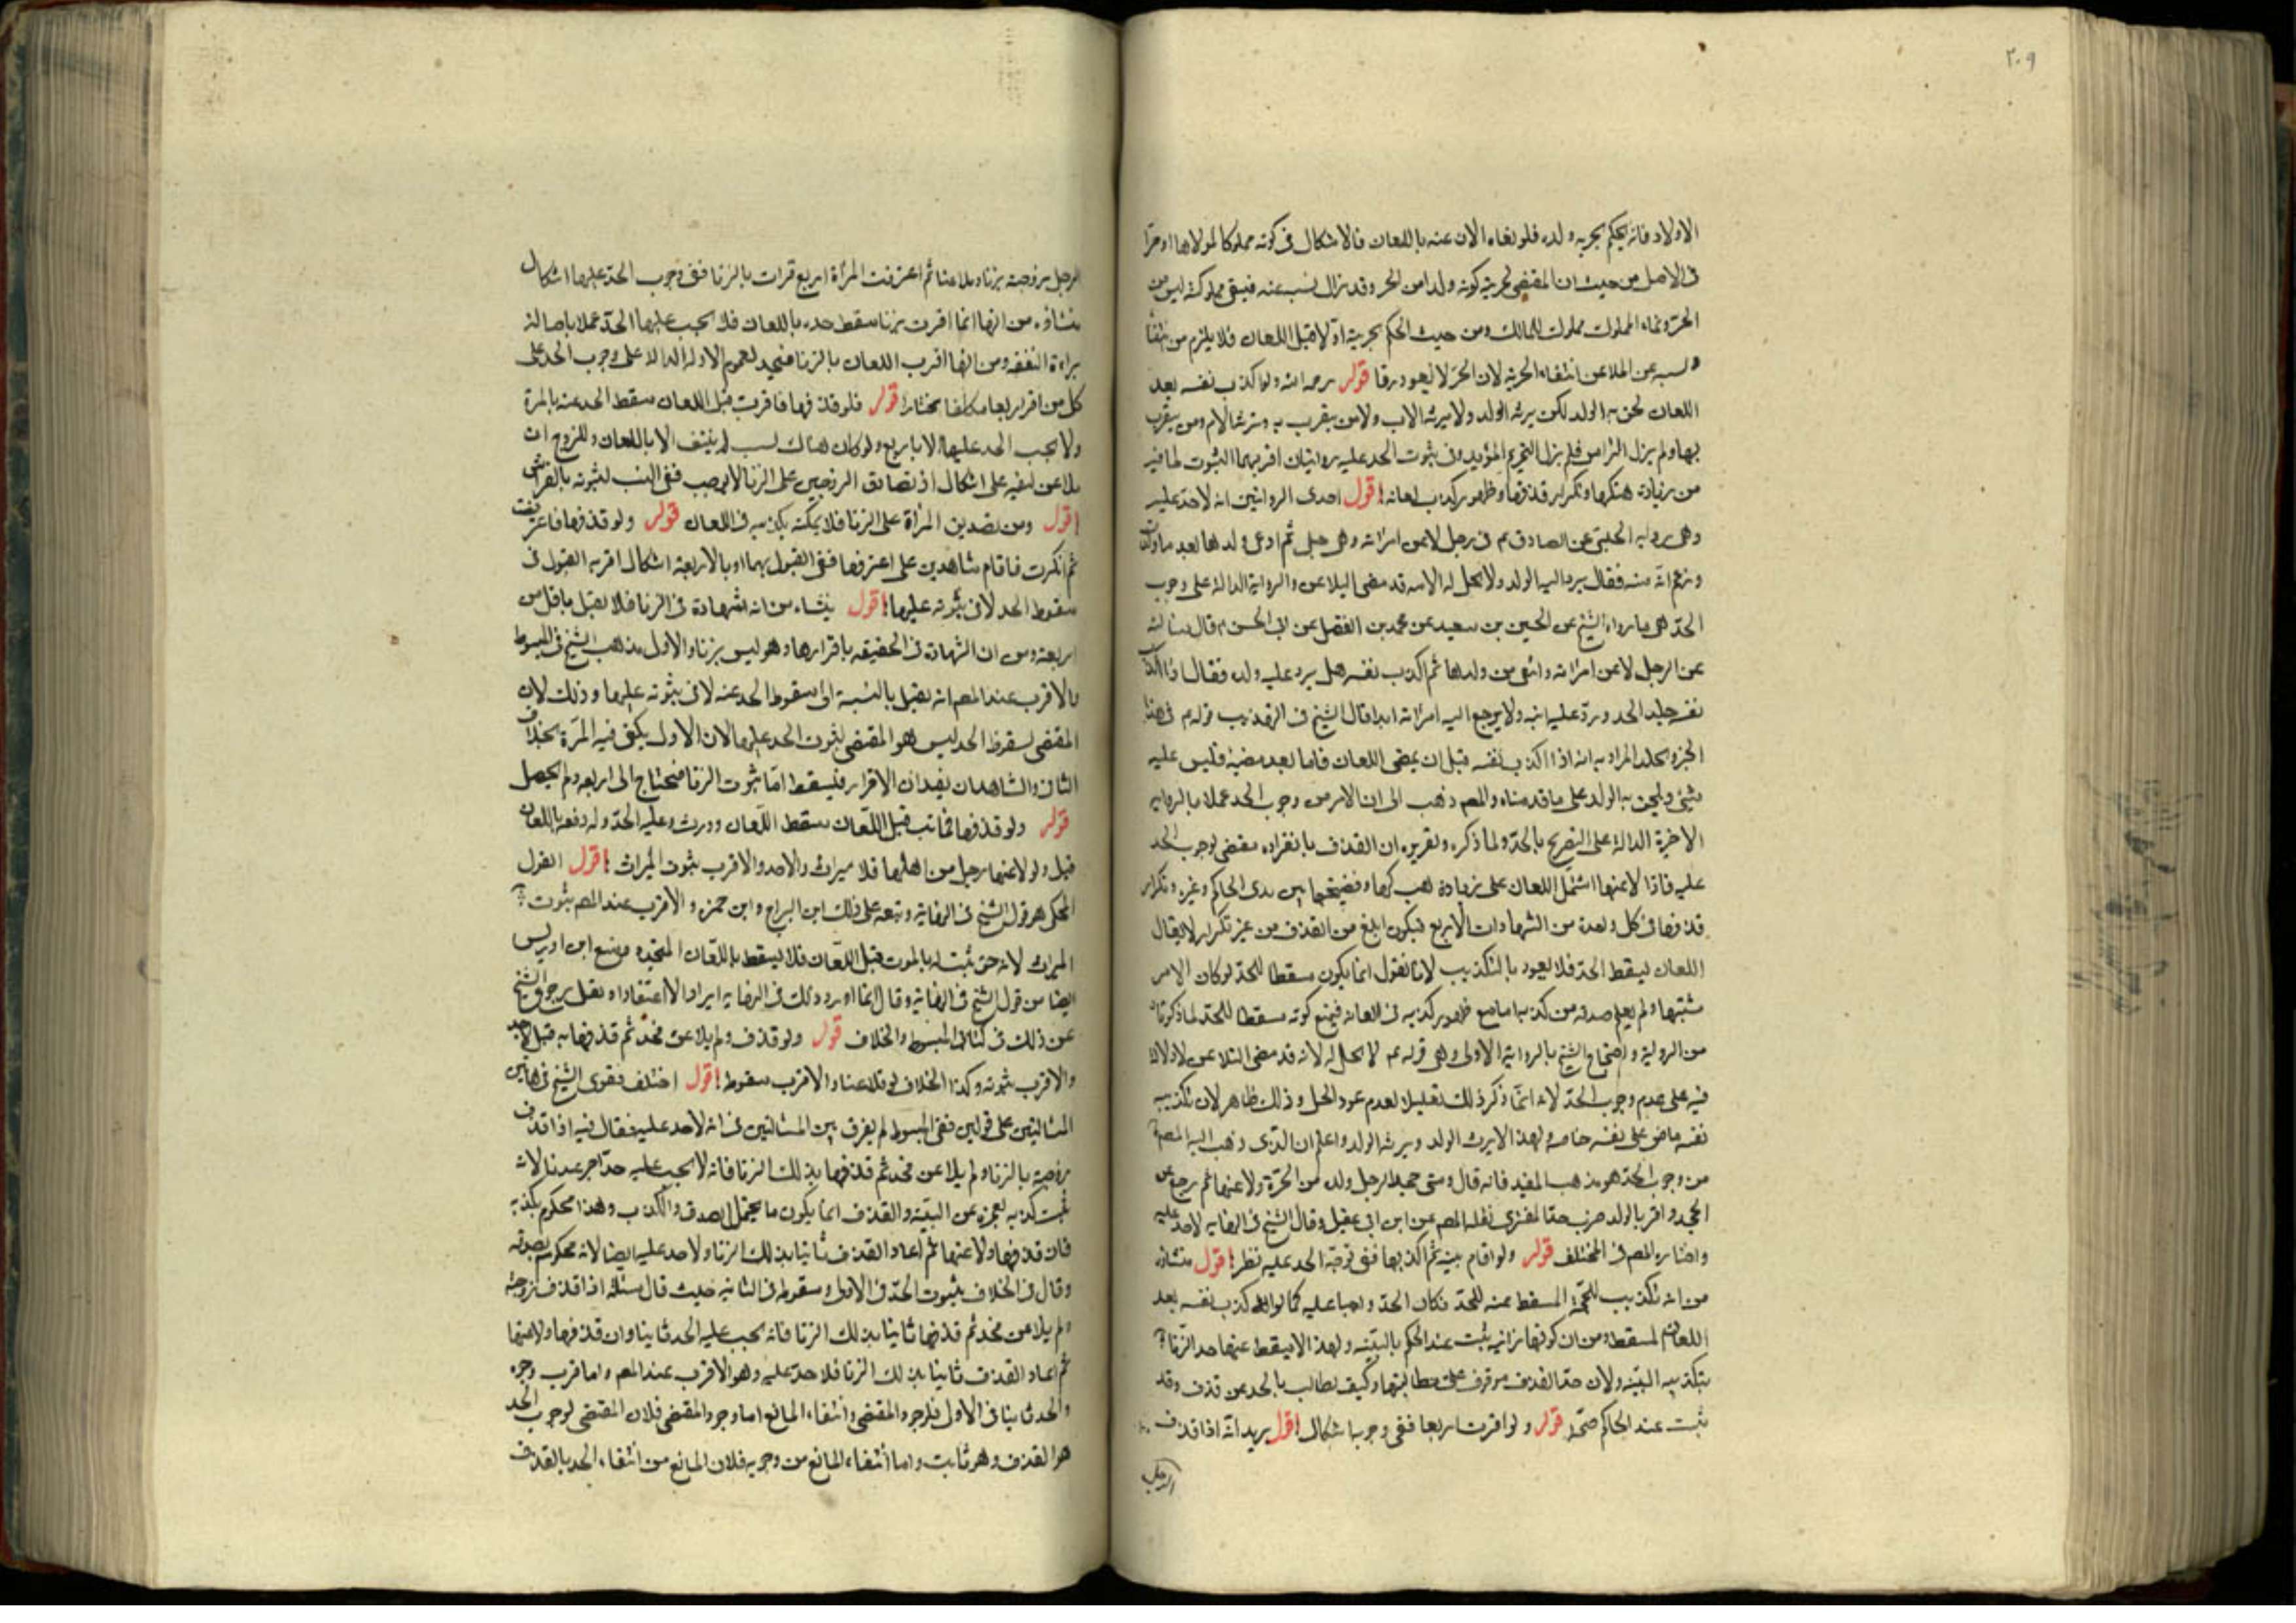 ٢٠٩
الاولاد فانه يحكم بحرية ولده فلو نفاه الان عنه باللعان فالاشكال فى كونه مملوكا لمولاها او حرا
فى الاصل من حيث ان المقتضى لحريته كونه ولدا من الحر وقد زال نسبه عنه فيبقى مملوكته ليس من
الحر ونماء المملوك مملوك للمالك ومن حيث الحكم بحريته اولا قبل اللعان فلا يلزم من انتفاء
نسبه عن الملاعن انتفاء الحرية لان الحر لا يعود رقا قوله رحمه الله ولو اكذب نفسه بعد
اللعان لحق به الولد لكن يرثه الولد ولا يرثه الاب ولا من يتقرب به وترثه الام ومن يتقرب
بها ولم يزل الفراش فلم يزل التحريم المؤبد وفى ثبوت الحد عليه روايتان اقربهما الثبوت لما فيه
من زيادة هتكها وتكرار قذفها وظهور كذب لعانه اقول احدى الروايتين انه لا حد عليه
وهى رواية الحلبى عن الصادق ع فى رجل لاعن امراته وهى حبلى ثم ادعى ولدها بعد ما ولدت
وزعم انه منه فقال يرد اليه الولد ولا تحل له لانه قد مضى التلاعن والرواية الدالة على وجوب
الحد هى ما رواه الشيخ عن الحسين بن سعيد عن محمد بن الفضل عن ابى الحسن ع قال سالته
عن الرجل لاعن امراته وانتفى من ولدها ثم اكذب نفسه هل يرد عليه ولده فقال اذا اكذب
نفسه جلد الحد ورد عليه ابنه ولا يرجع اليه امراته ابدا قال الشيخ فى التهذيب قوله ع فى هذا
الخبر وجلد المراد به انه اذا اكذب نفسه قبل ان يمضى اللعان فاما بعد مضيه فليس عليه
شىء ويلحق به الولد على ما قدمناه والمصم ذهب الى ان الاقرب وجوب الحد عملا بالرواية
الاخيرة الدالة على التصريح بالحد ولما ذكره وتقريره ان القذف بانفراده مقتضى لوجوب الحد
عليه فاذا لاعنها اشتمل اللعان على زيادة هتكها وفضيحتها بين يدى الحاكم وغيره وتكرار
قذفها فى كل واحدة من الشهادات الاربع فيكون ابلغ من القذف من غير تكرار لا يقال
اللعان يسقط الحد فلا يعود بالتكذيب لانا نقول انما يكون مسقطا للحد لو كان الامر
مشتبها ولم يعلم صدقه من كذبه اما مع ظهور كذبه فى لعانه فيمنع كونه مسقطا للحد لما ذكرناه
من الرواية واحتجاج الشيخ بالرواية الاولى وهى قوله ع لا تحل له لانه قد مضى التلاعن لا دلالة
فيه على عدم وجوب الحد لانه انما ذكر ذلك تعليلا لعدم عود الحل وذلك ظاهر لان تكذيبه
نفسه ماض على نفسه خاصة ولهذا لا يرث الولد ويرثه الولد واعلم ان الذى ذهب اليه المصم
من وجوب الحد هو مذهب المفيد فانه قال ومتى جحد الرجل ولده من الحرة ولاعنها ثم رجع عن
الجحد واقر بالولد ضرب حد المفترى نقله المصم عن ابن ابى عقيل وقال الشيخ فى النهاية لا حد عليه
واختاره المصم فى المختلف قوله ولو اقام بينة ثم اكذبها ففى توجه الحد عليه نظر اقول منشاؤه
من انه تكذيب للحجة المسقط عنه للحد فكان الحد واجبا عليه كما لو اكذب نفسه بعد
اللعان المسقط ومن ان كونها زانية يثبت عند الحكم بالبينة ولهذا لا يسقط عنها حد الزنا
بتكذيبه البينة ولان حد القذف موقوف على مطالبتها وكيف يطالب بالحد عن قذف وقد
ثبت عند الحاكم صحته قوله ولو اقرت اربعا ففى وجوبه اشكال اقول يريد انه اذا قذف
الرجل
الرجل زوجته بزنا وتلاعنا ثم اعترفت المراة اربع مرات بالزنا ففى وجوب الحد عليها اشكال
منشاؤه من انها انما اقرت بزنا سقط حده باللعان فلا يجب عليها الحد عملا باصالة
براءة الذمة ومن انها اقرت اللعان بالزنا فيحد لعموم الادلة الدالة على وجوب الحد على
كل من اقر اربعا مكلفا مختارا قوله فلو قذفها فاقرت قبل اللعان سقط الحد عنه بالمرة
ولا يجب الحد عليها الا باربع ولو كان هناك نسب لم ينتف الا باللعان وللزوج ان
يلاعن لنفيه على اشكال اذ تصادق الزوجين على الزنا لا يوجب نفى النسب لثبوته بالفراش
اقول ومن تصديق المراة على الزنا فلا يمكنه تكذيبه فى اللعان قوله ولو قذفها فاعترفت
ثم انكرت فاقام شاهدين على اعترافها ففى القبول بهما او بالاربعة اشكال اقربه القبول فى
سقوط الحد لا فى ثبوته عليها اقول ينشاء من انه شهادة فى الزنا فلا يقبل باقل من
اربعة ومن ان الشهادة فى الحقيقة باقرارها وهو ليس بزنا والاول مذهب الشيخ فى المبسوط
والاقرب عند المصم انه يقبل بالنسبة الى سقوط الحد عنه لا فى ثبوته عليها وذلك لان
المقتضى لسقوط الحد ليس هو المقتضى لثبوت الحد عليها لان الاول يكفى فيه المرة بخلاف
الثانى والشاهدان يفيدان الاقرار فيسقط اما ثبوت الزنا فيحتاج الى اربعة ولم يحصل
قوله ولو قذفها فماتت قبل اللعان سقط اللعان وورث وعليه الحد وله دفعه باللعان
قيل ولو لاعنها رجل من اهلها فلا ميراث ولا حد والاقرب ثبوت الميراث اقول القول
المحكى هو قول الشيخ فى النهاية وتبعه على ذلك ابن البراج وابن حمزه والاقرب عند المصم ثبوت
الميراث لانه حق ثبت له بالموت قبل اللعان فلا يسقط باللعان المتجدد ومنع ابن ادريس
ايضا من قول الشيخ فى النهاية وقال انما اورد ذلك فى النهاية ايرادا لا اعتقادا ونقل رجوع الشيخ
عن ذلك فى كتابى المبسوط والخلاف قوله ولو قذف ولم يلاعن فحد ثم قذفها به قيل لا حد
والاقرب ثبوته وكذا الخلاف لو تلاعنا والاقرب سقوطه اقول اختلف فتوى الشيخ فى هاتين
المسالتين على قولين ففى المبسوط لم يفرق بين المسالتين فى انه لا حد عليه فقال فيه اذا قذف
زوجته بالزنا ولم يلاعن فحد ثم قذفها بذلك الزنا فانه لا يجب عليه حد اخر عندنا لانه
ثبت كذبه لعجزه عن البينة والقذف انما يكون ما يحتمل الصدق والكذب وهذا محكوم بكذبه
فان قذفها ولاعنها ثم اعاد القذف ثانيا بذلك الزنا ولا حد عليه ايضا لانه محكوم بصدقه
وقال فى الخلاف بثبوت الحد فى الاولى وسقوطه فى الثانية حيث قال مسئلة اذا قذف زوجته
ولم يلاعن فحد ثم قذفها ثانيا بذلك الزنا فانه يجب عليه الحد ثانيا وان قذفها ولاعنها
ثم اعاد القذف ثانيا بذلك الزنا فلا حد عليه وهو الاقرب عند المصم واما قرب وجوه
والحد ثانيا فى الاول فلوجود المقتضى وانتفاء المانع اما وجود المقتضى فلان المقتضى لوجوب الحد
هو القذف وهو ثابت واما انتفاء المانع من وجوبه فلان المانع من انتفاء الحد بالقذف